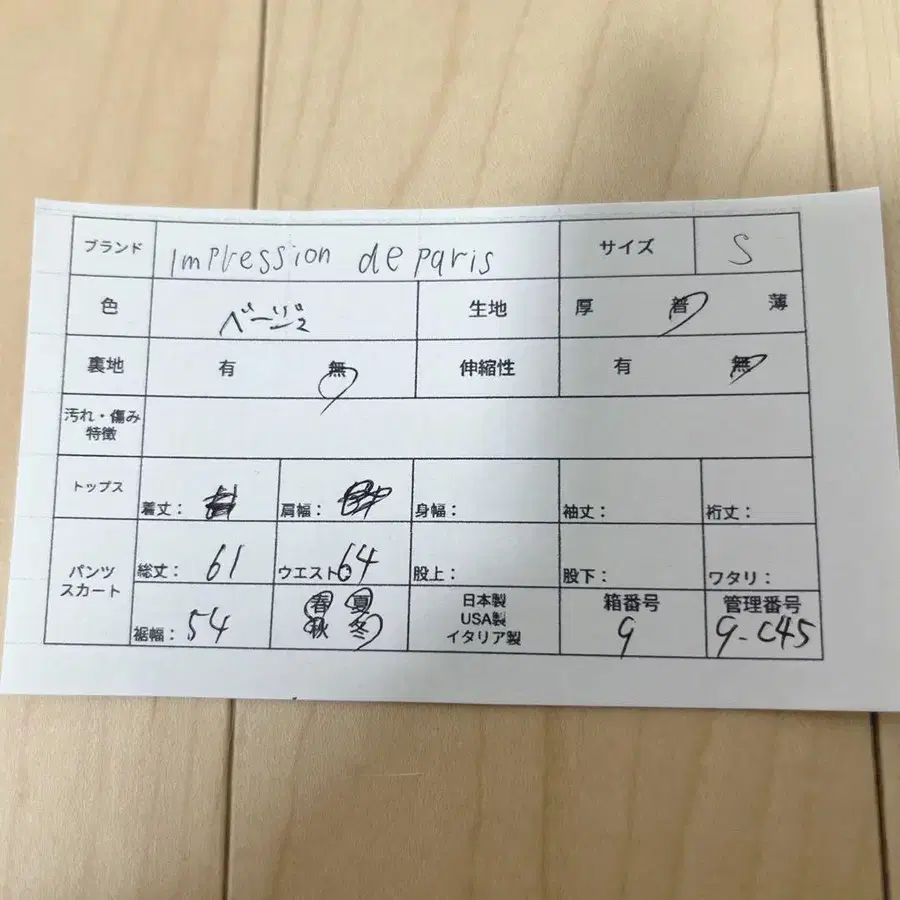 ブランド Impression de paris サイズ S
色 ベージュ 生地 厚 普 薄
裏地 有 無 伸縮性 有 無
汚れ・傷み
特徴
トップス 着丈: 肩幅: 身幅: 袖丈: 裄丈:
パンツ
スカート
総丈: 61 ウエスト: 64 股上: 股下: ワタリ:
裾幅: 54
春 夏
秋 冬
日本製
USA製
イタリア製
箱番号
9
管理番号
9-C45